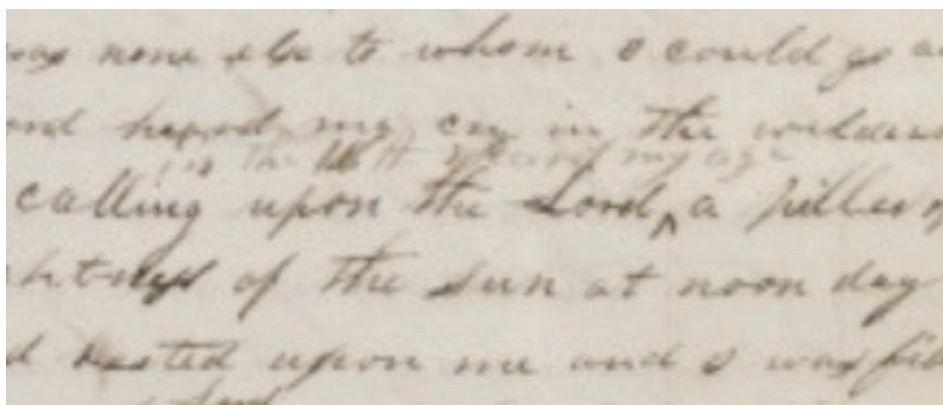 was none else to whom I could go a
ord heard my cry in the wilder
in the 16th year of my age
calling upon the Lord a piller o
htness of the sun at noon day
d rested upon me and I was fil
Lord